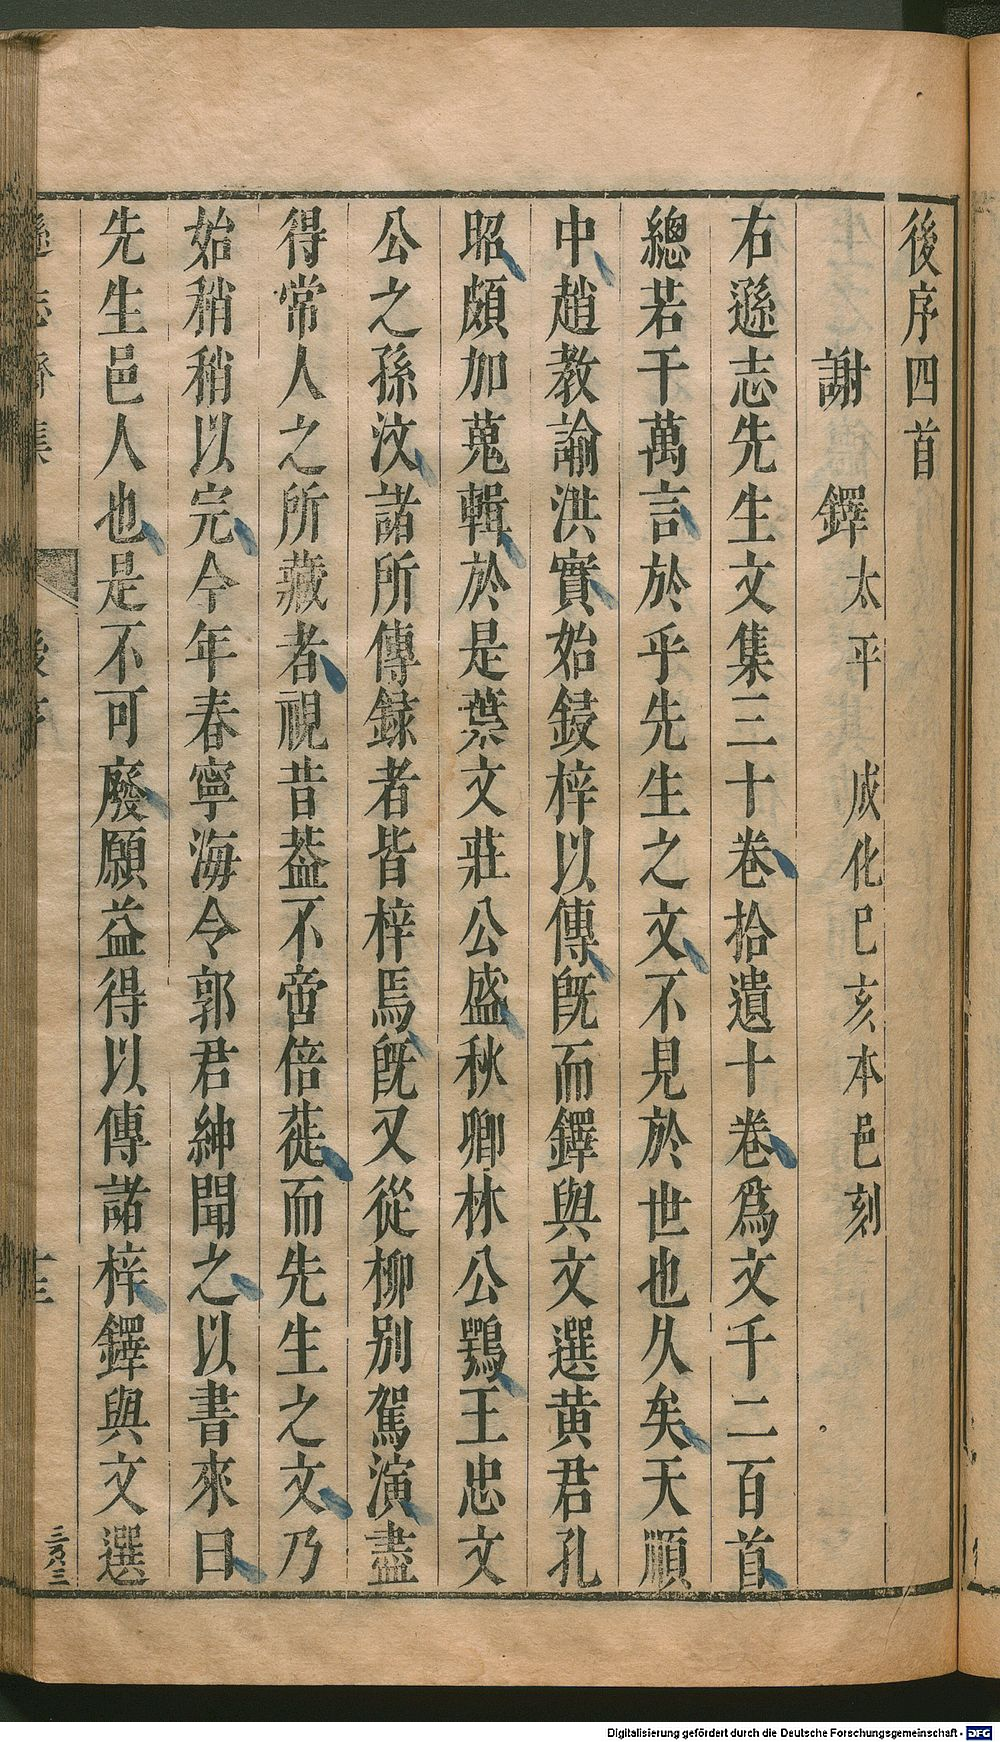 後序四首
謝鐸太平 成化己亥本邑刻
右遜志先生文集三十卷拾遺十卷爲文千二百首
總若干萬言於乎先生之文不見於世也久矣天順
中趙教諭洪實始鋟梓以傳旣而鐸與文選黄君孔
昭頗加蒐輯於是葉文莊公盛秋卿林公鶚王忠文
公之孫汶諸所傳録者皆梓焉旣又從柳别駕演盡
得常人之所藏者視昔葢不啻倍蓰而先生之文乃
始稍稍以完今年春寧海令郭君紳聞之以書來曰
先生邑人也是不可廢願益得以傳諸梓鐸與文選
Digitalisierung gefördert durch die Deutsche Forschungsgemeinschaft - DFG